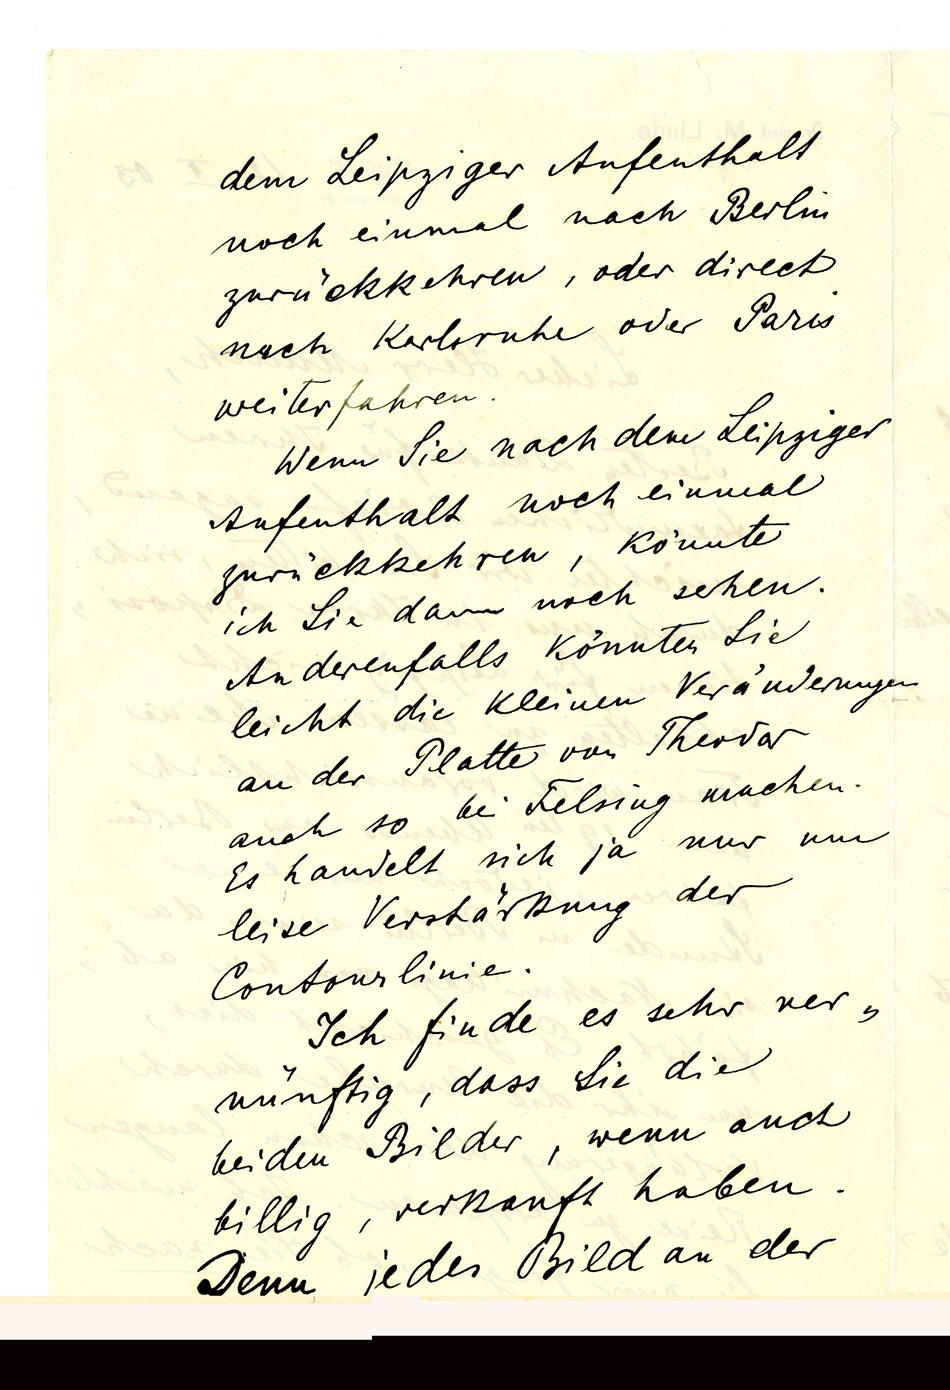 dem Leipziger Aufenthalt
noch einmal nach Berlin
zurückkehren, oder direct
nach Karlsruhe oder Paris
weiterfahren.
Wenn Sie nach dem Leipziger
Aufenthalt noch einmal
zurückkehren, könnte
ich Sie dann noch sehen.
Anderenfalls könnten Sie
leicht die kleinen Veränderungen
an der Platte von Theodor
auch so bei Felsing machen.
Es handelt sich ja nur um
leise Verstärkung der
Contourlinie.
Ich finde es sehr ver„
nünftig, dass Sie die
beiden Bilder, wenn auch
billig, verkauft haben.
Denn jedes Bild an der